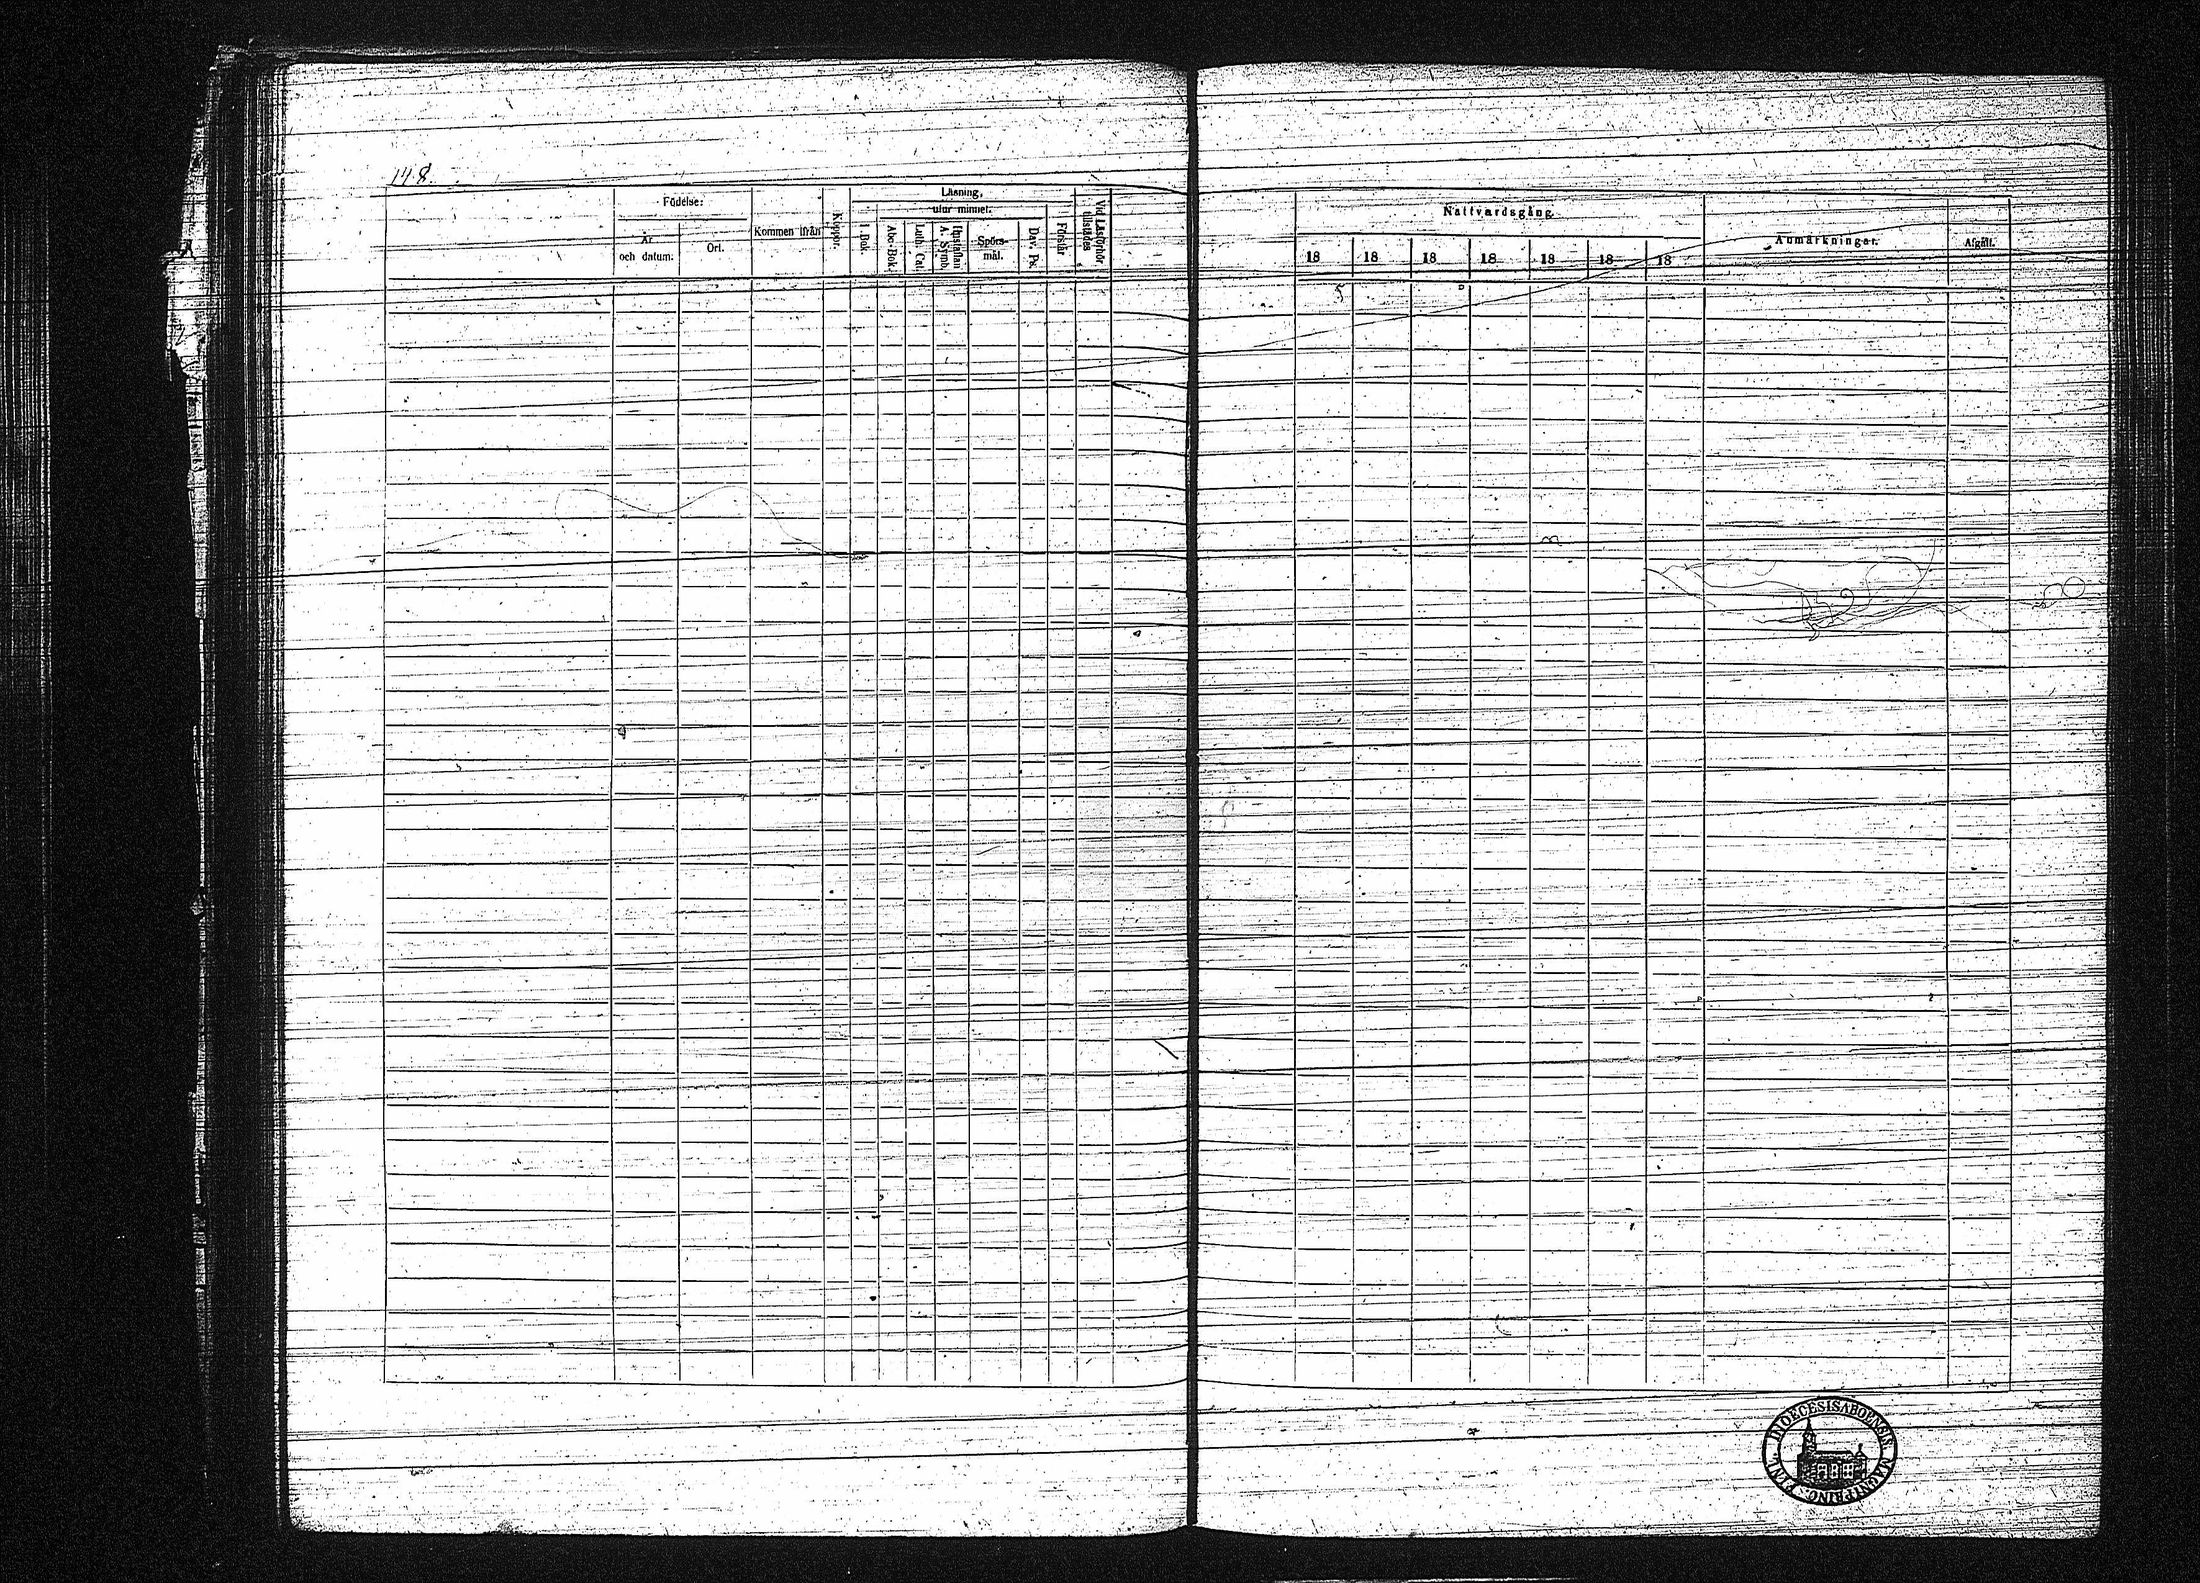 148.
Födelse:
År
och datum.
Ort.
Kommen ifrån
Koppor.
Läsning,
utur minnet.
I Bok.
Abc-Bok.
Luth. Cat.
Hustaflan
A. Symb.
Spörs-
mål.
Dav. Ps.
Förstår
Vid Läsförhör
tillstädes
Nattvardsgång.
18 18 18 18 18 18 18
Anmärkningar.
Afgått.